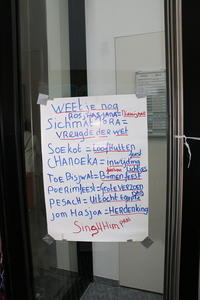 WEET je nog
ROSJ HASJANA =
SicHMAT TORA =
VREUGDE DER WET
SOEKOT = Loofhutten
CHANOEKA = inwijding
TOE Bisjwat = Bomenfeest
Poerimfeest = Grote verzoen
PESACH = UiTtocht Egypte
Jom Hasjoa = Herdenking